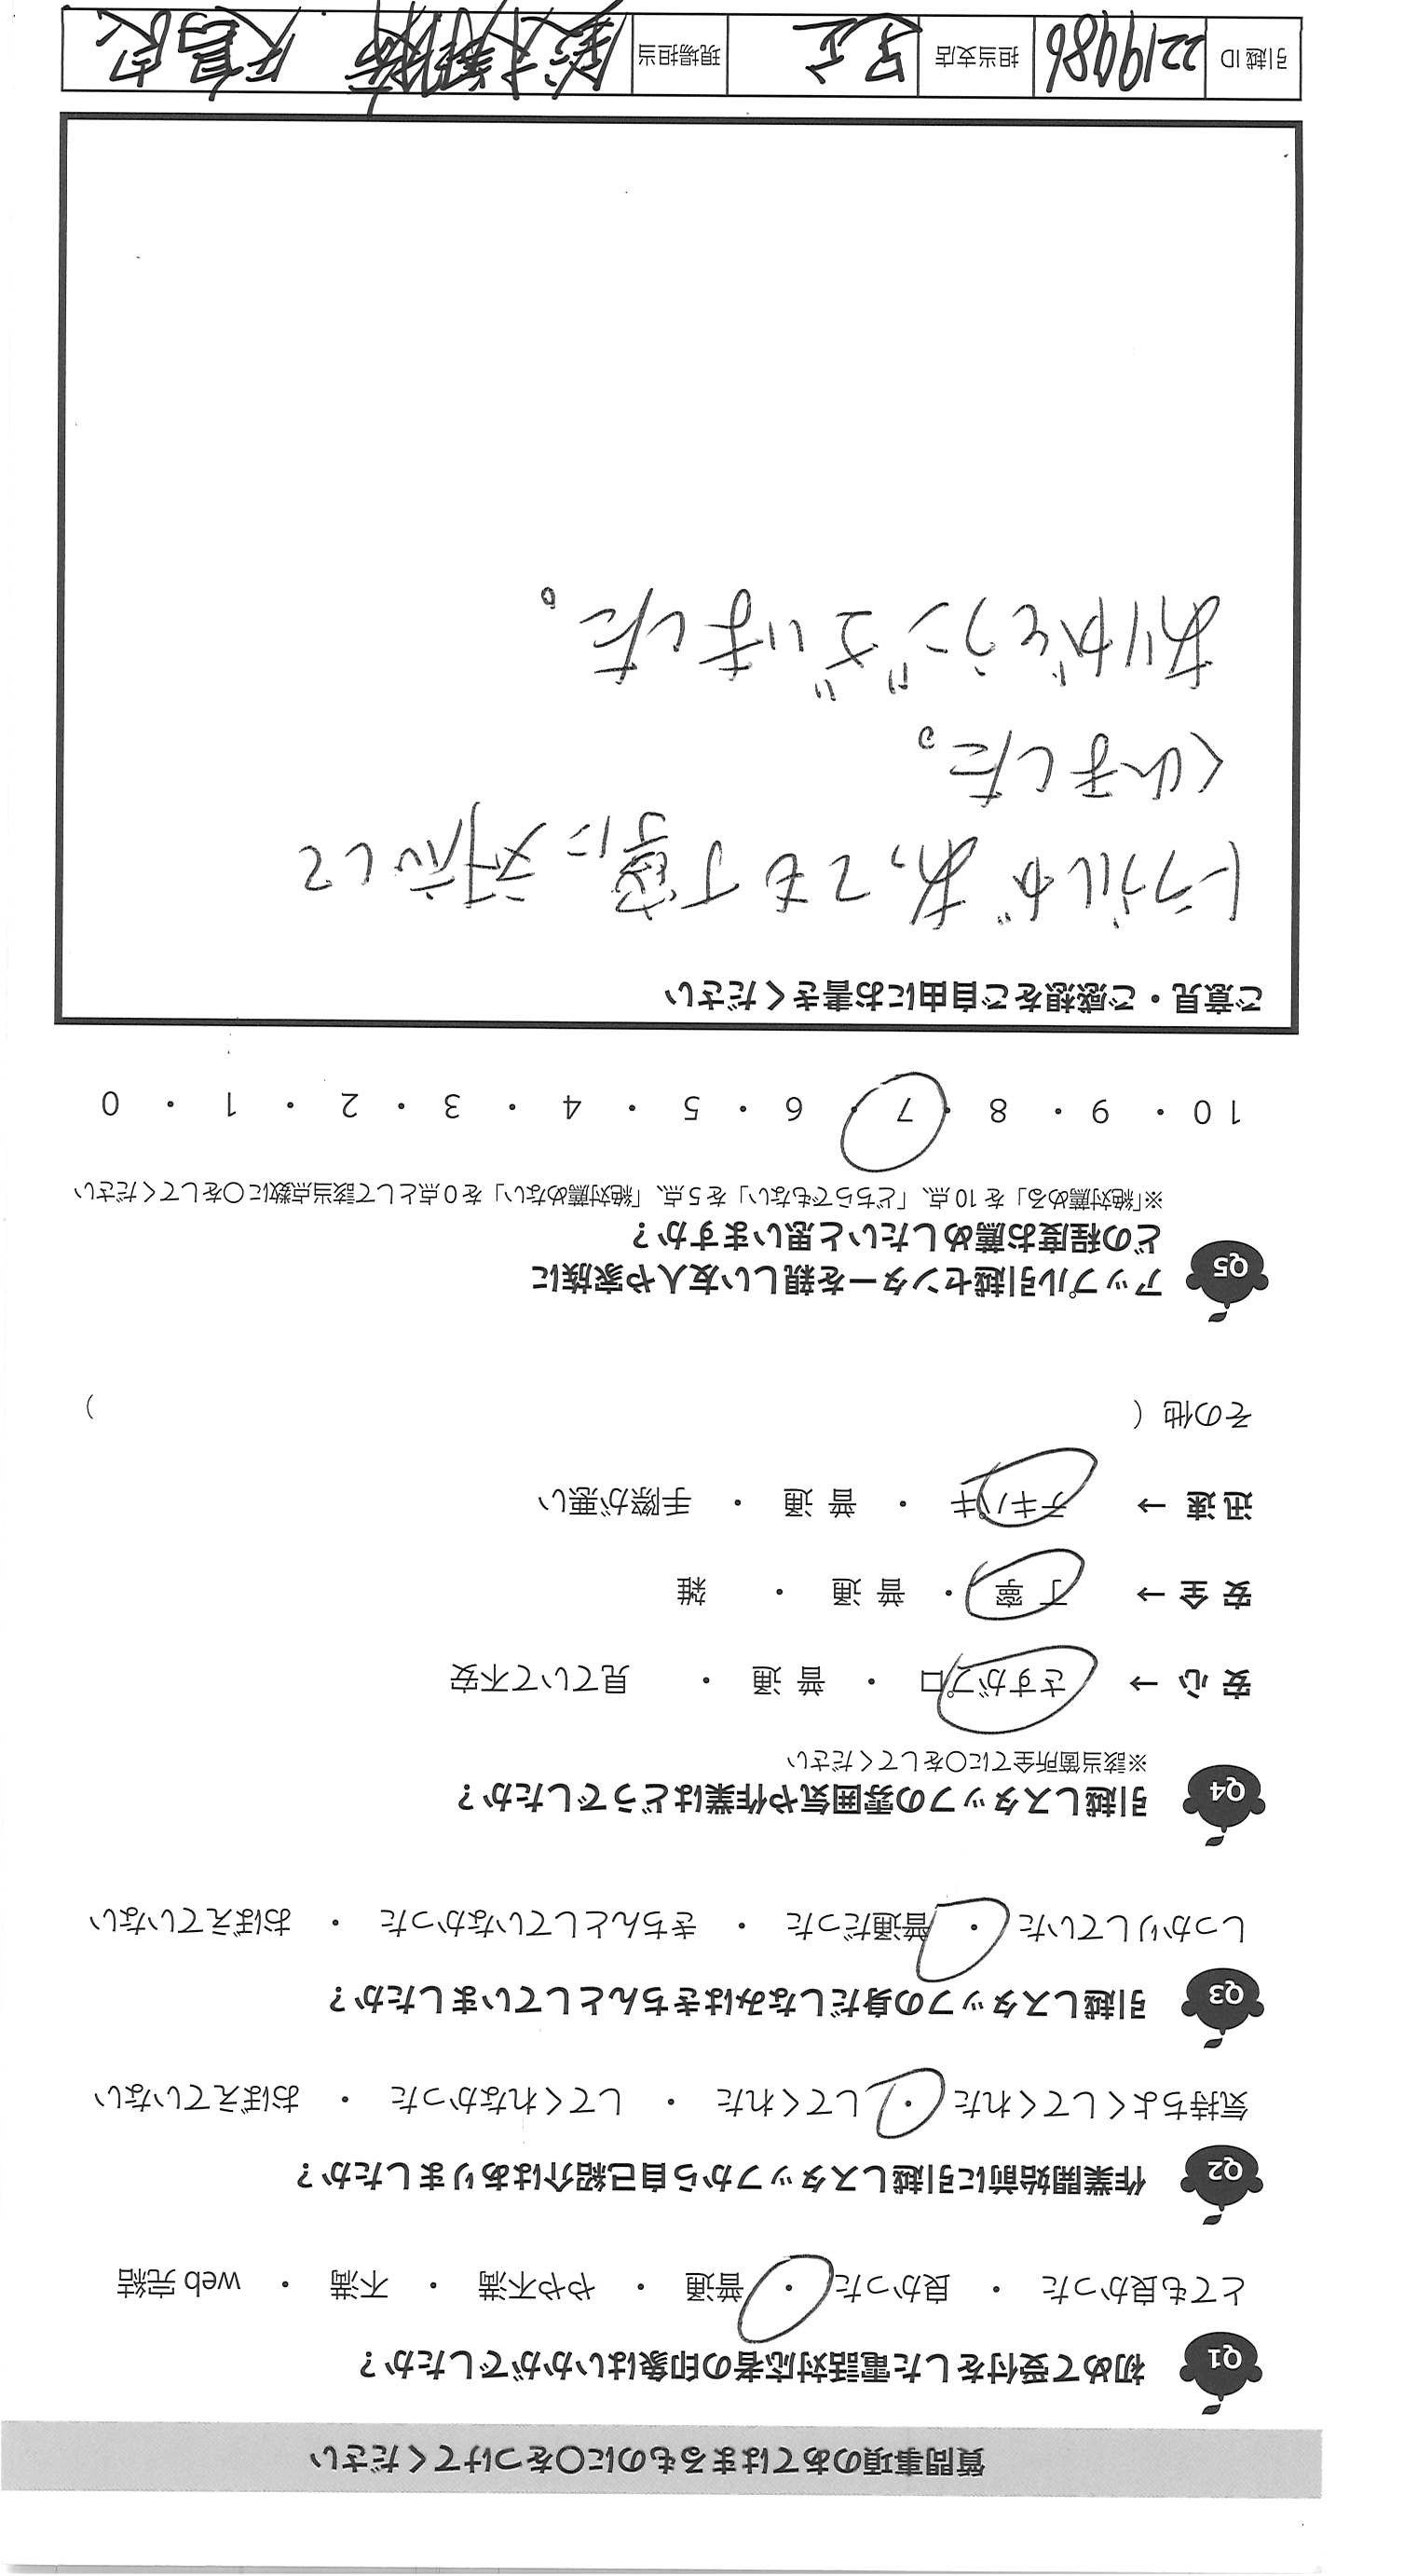 質問事項のあてはまるものに〇をつけてください
Q1 初めて受付をした電話対応者の印象はいかがでしたか？
とても良かった ・ 良かった ・ 普通 ・ やや不満 ・ 不満 ・ web 完結
Q2 作業開始前に引越しスタッフから自己紹介はありましたか？
気持ちよくしてくれた ・ してくれた ・ してくれなかった ・ おぼえていない
Q3 引越しスタッフの身だしなみはきちんとしていましたか？
しっかりしていた ・ 普通だった ・ きちんとしていなかった ・ おぼえていない
Q4 引越しスタッフの雰囲気や作業はどうでしたか？
※該当箇所全てに〇をしてください
安 心 → さすがプロ ・ 普 通 ・ 見ていて不安
安 全 → 丁 寧 ・ 普 通 ・ 雑
迅 速 → テキパキ ・ 普 通 ・ 手際が悪い
その他（ ）
Q5 アップル引越センターを親しい友人や家族に
どの程度お薦めしたいと思いますか？
※「絶対薦める」を 10 点、「どちらでもない」を 5 点、「絶対薦めない」を 0 点として該当点数に〇をしてください
10 ・ 9 ・ 8 ・ 7 ・ 6 ・ 5 ・ 4 ・ 3 ・ 2 ・ 1 ・ 0
ご意見・ご感想をご自由にお書きください
トラブルがあっても丁寧に対応して
くれました。
ありがとうございました。
引越 ID 2219986 担当支店 現場担当 鈴木